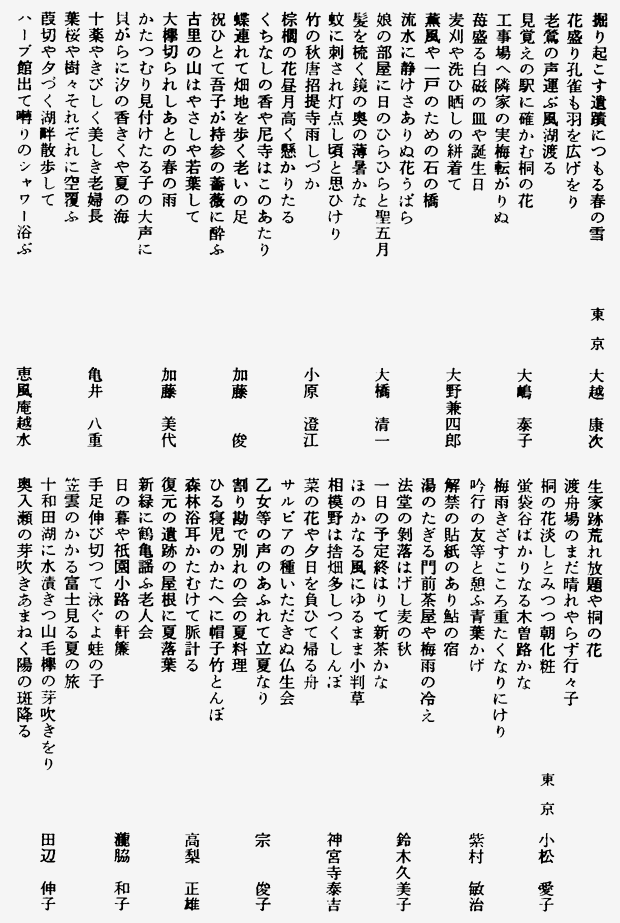 掘り起こす遺蹟につもる春の雪
花盛り孔雀も羽を広げをり
老鶯の声運ぶ風湖渡る
東京 大越 康次
見覚えの駅に確かむ桐の花
工事場へ隣家の実梅転がりぬ
苺盛る白磁の皿や誕生日
大嶋 泰子
麦刈や洗ひ晒しの絣着て
薫風や一戸のための石の橋
流水に静けさありぬ花うばら
大野兼四郎
娘の部屋に日のひらひらと聖五月
髪を梳く鏡の奥の薄暑かな
蚊に刺され灯点し頃と思ひけり
大橋 清一
竹の秋唐招提寺雨しづか
棕櫚の花昼月高く懸かりたる
くちなしの香や尼寺はこのあたり
小原 澄江
蝶連れて畑地を歩く老いの足
祝ひとて吾子が持参の薔薇に酔ふ
古里の山はやさしや若葉して
加藤 俊
大欅切られしあとの春の雨
かたつむり見付けたる子の大声に
貝がらに汐の香きくや夏の海
加藤 美代
十薬やきびしく美しき老婦長
葉桜や樹々それぞれに空覆ふ
葭切や夕づく湖畔散歩して
亀井 八重
ハーブ館出て囀りのシャワー浴ぶ
恵風庵越水
生家跡荒れ放題や桐の花
渡舟場のまだ晴れやらず行々子
桐の花淡しとみつつ朝化粧
東京 小松 愛子
蛍袋谷ばかりなる木曽路かな
梅雨きざすこころ重たくなりにけり
吟行の友等と憩ふ青葉かげ
紫村 敏治
解禁の貼紙のあり鮎の宿
湯のたぎる門前茶屋や梅雨の冷え
法堂の剝落はげし麦の秋
鈴木久美子
一日の予定終はりて新茶かな
ほのかなる風にゆるまま小判草
相模野は捨畑多しつくしんぼ
神宮寺泰吉
菜の花や夕日を負ひて帰る舟
サルビアの種いただきぬ仏生会
乙女等の声のあふれて立夏なり
宗 俊子
割り勘で別れの会の夏料理
ひる寝児のかたへに帽子竹とんぼ
森林浴耳かたむけて脈計る
高梨 正雄
復元の遺跡の屋根に夏落葉
新緑に鶴亀謡ふ老人会
日の暮や祇園小路の軒簾
瀧脇 和子
手足伸び切つて泳ぐよ蛙の子
笠雲のかかる富士見る夏の旅
十和田湖に水漬きつ山毛欅の芽吹きをり
田辺 伸子
奥入瀬の芽吹きあまねく陽の斑降る